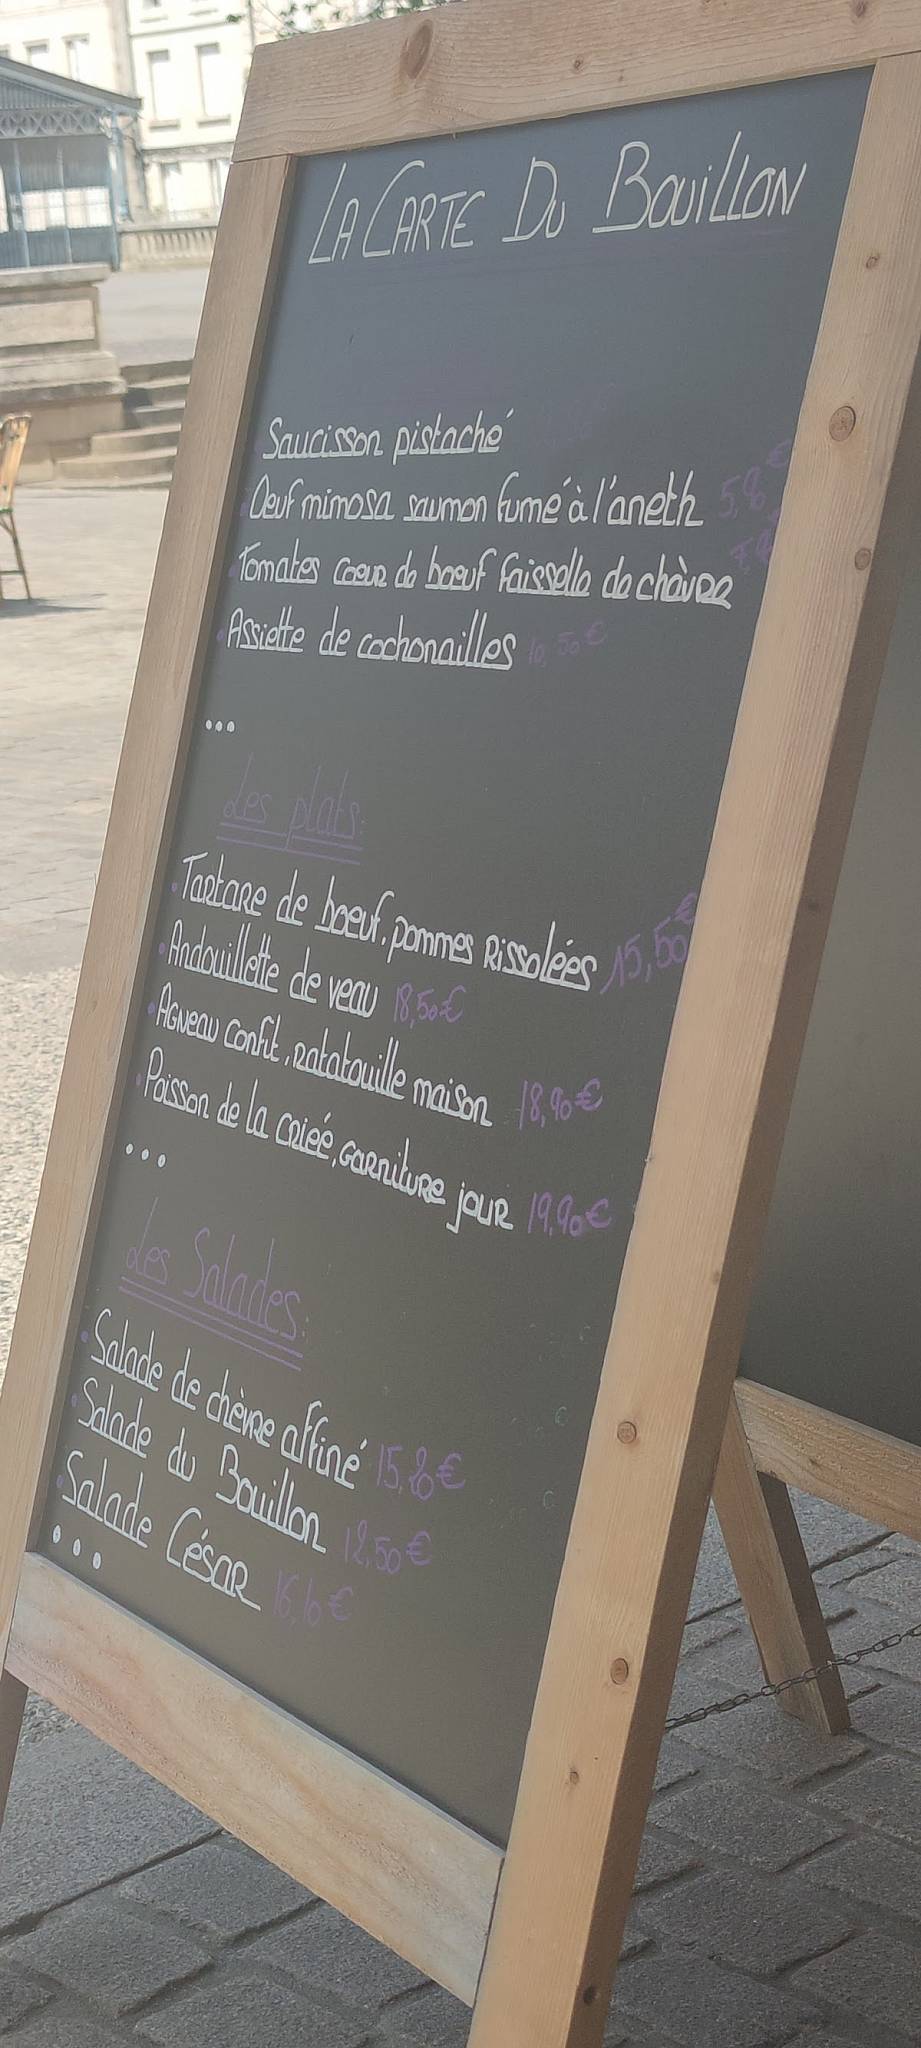 LA CARTE DU BOUILLON
Saucisson pistaché
Oeuf mimosa saumon fumé à l'aneth
Tomates coeur de boeuf faisselle de chèvre
Assiette de cochonailles 10,50€
...
Les plats:
Tartare de boeuf, pommes Rissolées 15,50€
Andouillette de veau 18,50€
Agneau confit, ratatouille maison 18,90€
Poisson de la criéé, garniture jour 19,90€
...
Les Salades:
Salade de chèvre affiné 15,20€
Salade du Bouillon 12,50€
Salade César 16,10€
...